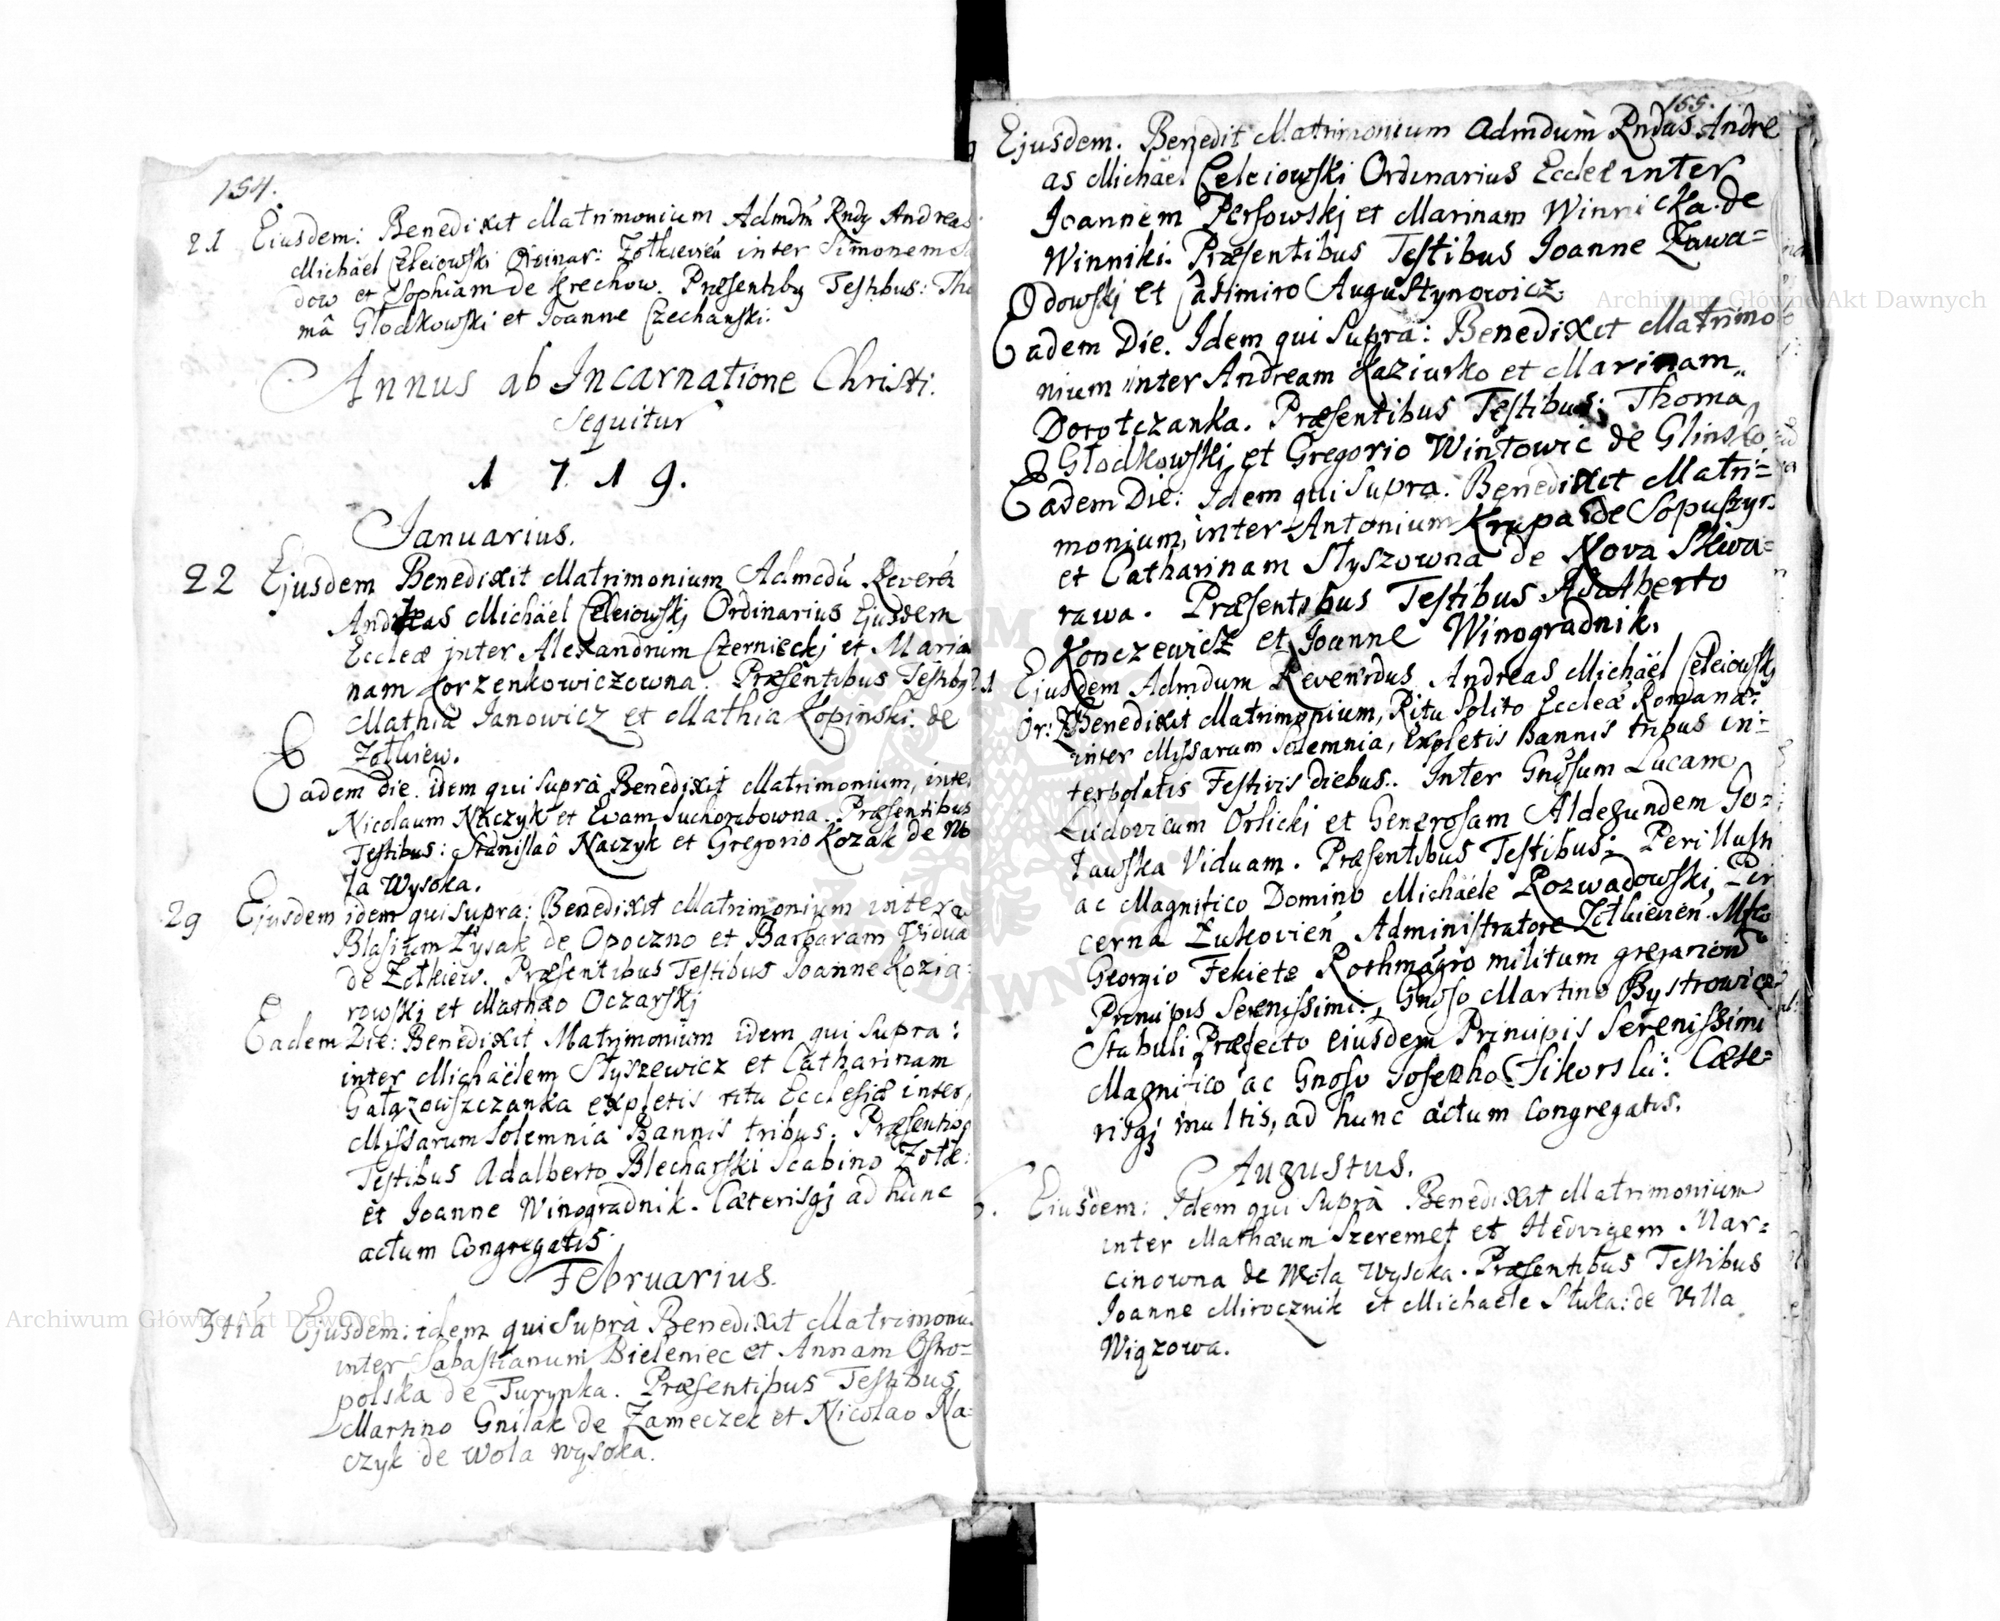 154.
21 Eiusdem: Benedixit Matrimonium Admdm Rndq Andreas
Michäel Celeiowski Ordinar: Zotkievień inter Simonem
dow et Sophiam de Krechow. Præsentibq Testibus: Tho
mâ Głodkowski et Joanne Czechanski:
Annus ab Incarnatione Christi:
sequitur
1 7 1 9.
Januarius.
22 Ejusdem Benedixit Matrimonium Admodú Reverń
Andreas Michäel Celeiowskj Ordinarius Ejusdem
Eccleæ inter Alexandrum Czernieckj et Maria
nam Korzenkowiczowna. Præsentibus Testibq
Mathia Janowicz et Mathia Kopinski. de
Zotkiew.
Eadem die. idem qui suprà Benedixit Matrimonium, inter
Nicolaum Naczyk et Evam Suchorabowna. Præsentibus
Testibus: Stanislaô Naczyk et Gregorio Kozak de Wo
la Wysoka.
29 Ejusdem idem qui supra: Benedixit Matrimonium inter
Blasium Łysak de Opoczno et Barbaram Vidua
de Zotkiew. Præsentibus Testibus Joanne Kozia-
rowskj et Mathæo Oczarskj
Eadem Die: Benedixit Matrimonium idem qui supra:
inter Michäelem Styszewicz et Catharinam
Gałązowszczanka expletis ritu Ecclesiæ inter,
Missarum solemnia Bannis tribus. Præsentibq
Testibus Adalberto Blecharski Scabino Zotk:
et Joanne Winogradnik. Cæterisqj ad hunc
actum Congregatis.
Februarius.
3tiá Ejusdem: idem qui Suprà Benedixit Matrimoniú
inter Sabastianum Bieleniec et Annam Ostro=
polska de Turynka. Præsentibus Testibus
Martino Gnilak de Zameczek et Nicolao Na=
czyk de Wola Wysoka.
155.
Ejusdem. Benedit Matrimonium Admdum Rndus Andre
as Michäel Celeiowski Ordinarius Eccleæ inter
Joannem Persowskj et Marinam Winnicka. de
Winniki. Præsentibus Testibus Joanne Zawa=
dowskj et Casimiro Augustynowicz.
Eadem Die. Idem qui supra: Benedixit Matrimo
nium inter Andream Kaziurko et Marinam
Dorotczanka. Præsentibus Testibus: Thoma
Głodkowskj et Gregorio Wintowic de Glinsko
Eadem Die: Idem qui supra. Benedixit Matri=
monium, inter Antonium Krupa de Sopuszyn
et Catharinam Styszowna de Nova Skwa=
rawa. Præsentibus Testibus Adalberto
Konczewicz et Joanne Winogradnik.
21 Ejusdem Admdum Reverńdus Andreas Michäel Celeiowskj
Or: Z Benedixit Matrimonium, Ritu solito Eccleæ Romanæ:
inter Missarum solemnia, Expletis Bannis tribus in=
terpolatis Festivis diebus. Inter Gnosum Lucam
Ludovicum Orlickj et Generosam Aldegundem Go=
ławska Viduam. Præsentibus Testibus: Perillustri
ac Magnifico Domino Michäele Rozwadowski, Pin
cerna Łukovień Administratore Zotkievień. Mfco
Georgio Fekiete Rothmagro militum gregariorū
Principis Serenissimi, Gnoso Martino Bystrowicz
Stabuli Præfecto eiusdem Principis Serenissimi
Magnifico ac Gnoso Josepho Sikorski: Cæte=
risqj multis, ad hunc actum Congregatis.
Augustus.
Eiusdem: Idem qui suprà Benedixit Matrimonium
inter Mathæum Szeremet et Hedvigem Mar=
cinowna de Wola Wysoka. Præsentibus Testibus
Joanne Mirocznik et Michaele Stuka: de Villa
Wiązowa.
Archiwum Główne Akt Dawnych
Archiwum Główne Akt Dawnych